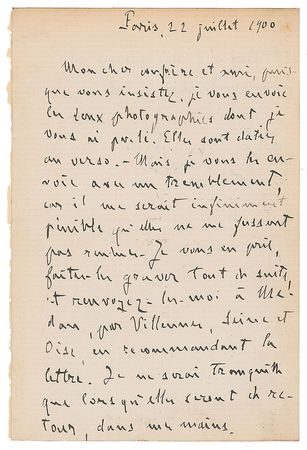 Paris, 22 juillet 1900
Mon cher confrère et ami, puis
que vous insistez, je vous envoie
les deux photographies dont je
vous ai parlé. Elles sont datées
au verso. – Mais je vous les en-
voie avec un tremblement,
car il me serait infiniment
pénible qu'elles ne me fussent
pas rendues. Je vous en prie,
faites-les graver tout de suite,
et renvoyez-les-moi à Mé-
dan, par Villennes, Seine et
Oise, en recommandant la
lettre. Je ne serai tranquille
que lorsqu'elles seront de re-
tour, dans mes mains.